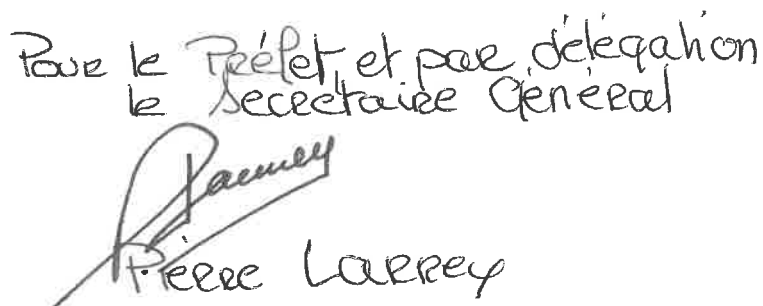 Pour le Préfet et par délégation
le Secrétaire Général
Pierre Larrey